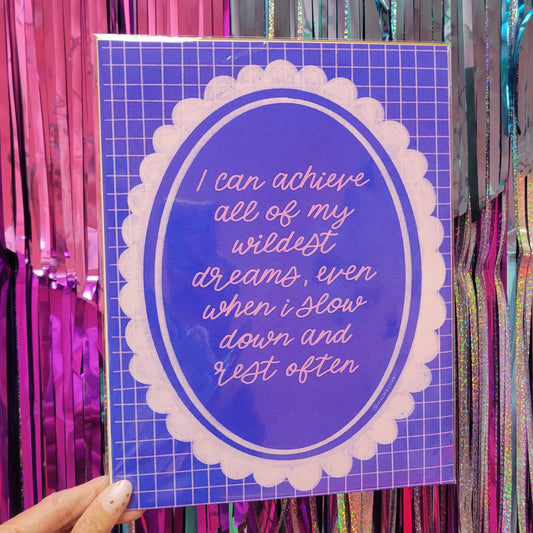 I can achieve
all of my
wildest
dreams, even
when i slow
down and
rest often